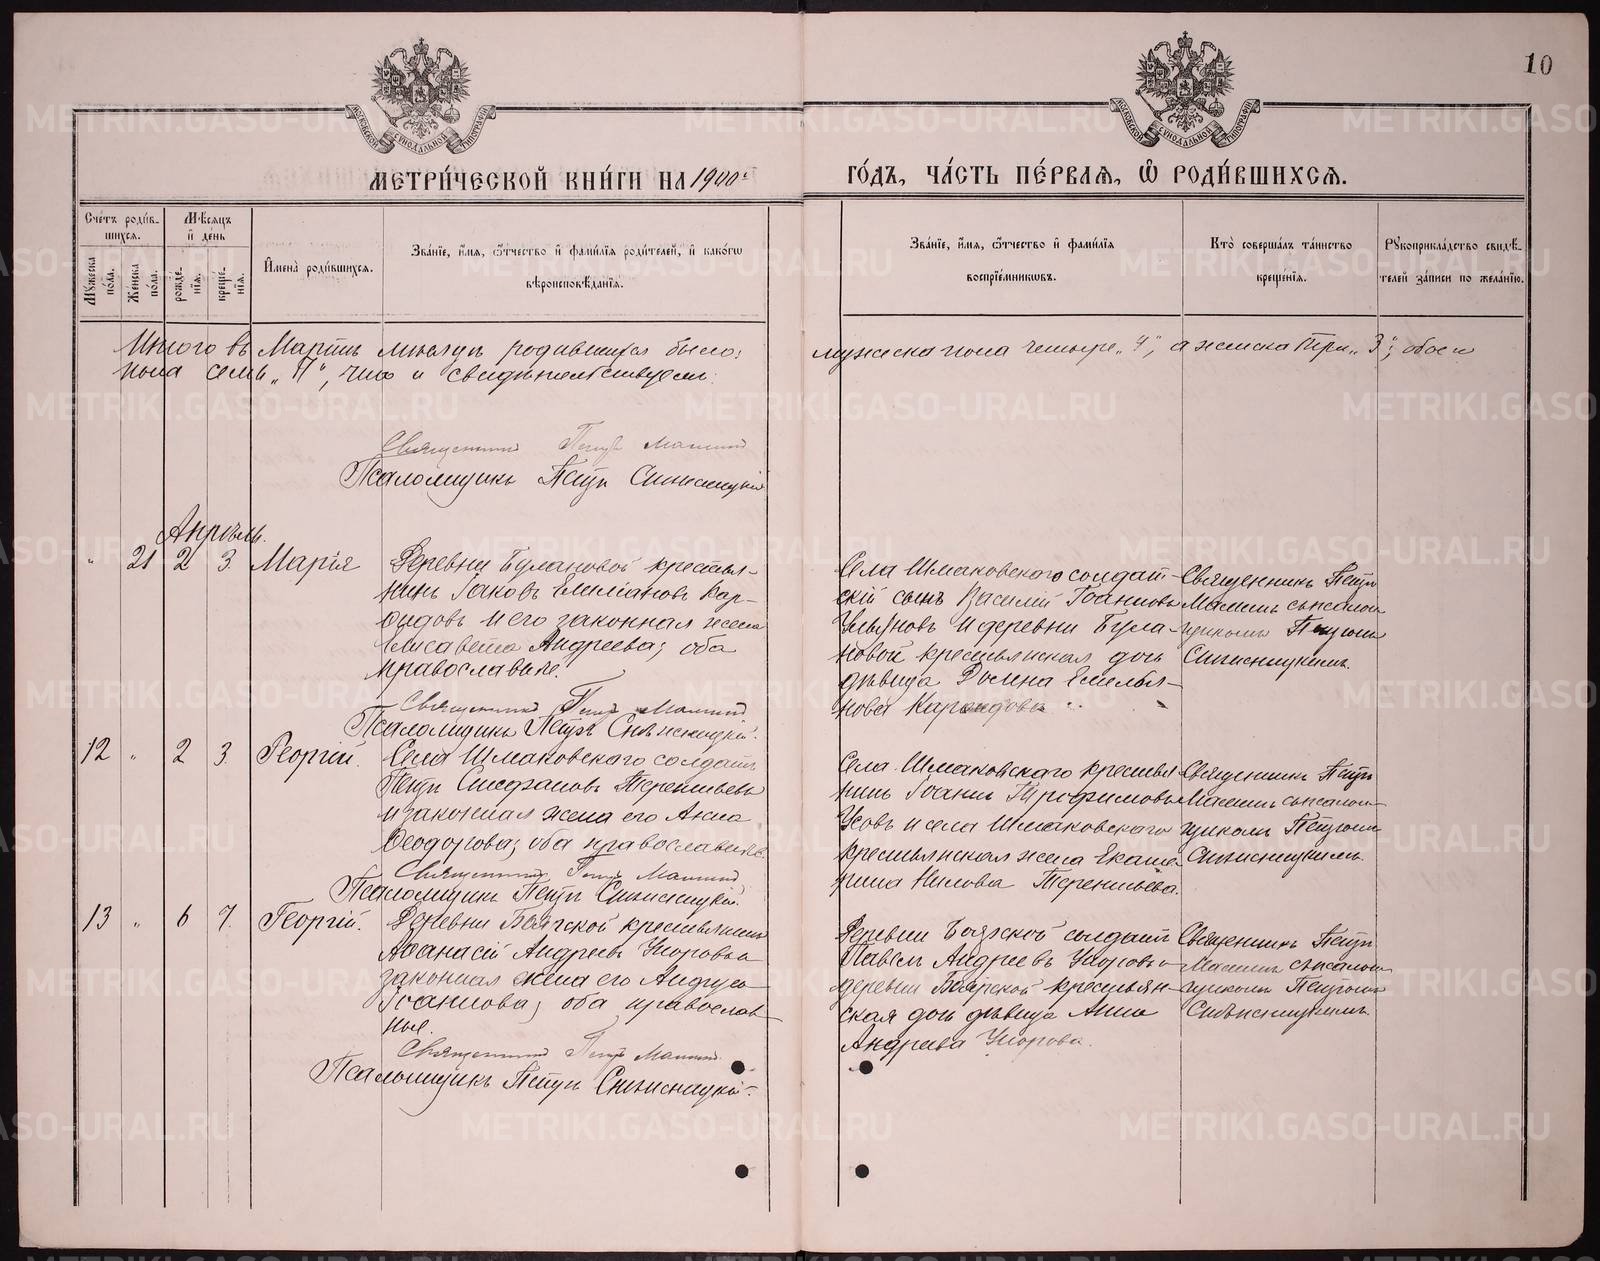 10
МЕТРИ́ЧЕСКОЙ КНИ́ГИ НА 1900й ГО́ДЪ, ЧА́СТЬ ПЕ́РВАЯ, Ѡ РОДИ́ВШИХСЯ.
Сче́тъ роди́в-
шихся.
Му́жеска по́ла.
Же́нска по́ла.
Мѣ́сяцъ и де́нь
рожде́нїя.
креще́нїя.
И҆мена̀ роди́вшихся.
Зва́нїе, и҆́мя, ѻ҆́тчество и҆ фами́лїя роди́телей, и҆ како́гѡ
вѣроисповѣ́данїя.
Зва́нїе, и҆́мя, ѻ҆́тчество и҆ фами́лїя
воспрїе́мниковъ.
Кто̀ соверша́лъ та́инство
креще́нїя.
Рꙋкоприкла́дство свидѣ́-
телей за́писи по жела́нїю.
Итого въ Мартѣ мѣсяцѣ родившихся было: мужеска пола четыре „4", а женска три „3"; обоего
пола семь „7", что и свидѣтельствуемъ:
Священникъ Петръ Мамин
Псаломщикъ Петръ Снѣсницкій
Апрѣль.
" 21 2 3 Марія
Деревни Булановой крестья-
нинъ Іаковъ Емиліановъ Кар-
фидовъ и его законная жена
Елисавета Андреева; оба
православные.
Священникъ Петръ Мамин
Псаломщикъ Петръ Снѣсницкій.
Села Шмаковского солдат-
скій сынъ Василій Іоанновъ
Ульяновъ и деревни Була-
новой крестьянская дочь
дѣвица Емелья-
нова
Священникъ Петръ
Маминъ съ псалом-
щикомъ Петромъ
Снѣсницкимъ.
12 " 2 3 Георгій.
Села Шмаковского солдатъ
Петръ Стефановъ Терентьевъ
и законная жена его Анна
Ѳеодорова; оба православные.
Священникъ Петръ Мамин
Псаломщикъ Петръ Снѣсницкій.
Села Шмаковского крестья-
нинъ Іоаннъ Трофимовъ
Усовъ и села Шмаковского
крестьянская жена Екате-
рина Нилова Терентьева.
Священникъ Петръ
Маминъ съ псалом-
щикомъ Петромъ
Снѣсницкимъ.
13 " 6 7. Георгій.
Деревни Боярской крестьянинъ
Аѳанасій Андреевъ Упоровъ и
законная жена его
Іоаннова; оба православ-
ные.
Священникъ Петръ Мамин
Псаломщикъ Петръ Снѣсницкій.
Деревни Боярской солдатъ
Павелъ Андреевъ Упоровъ и
деревни Боярской крестьян-
ская дочь дѣвица Анна
Андреева Упорова.
Священникъ Петръ
Маминъ съ псалом-
щикомъ Петромъ
Снѣсницкимъ.
METRIKI.GASO-URAL.RU